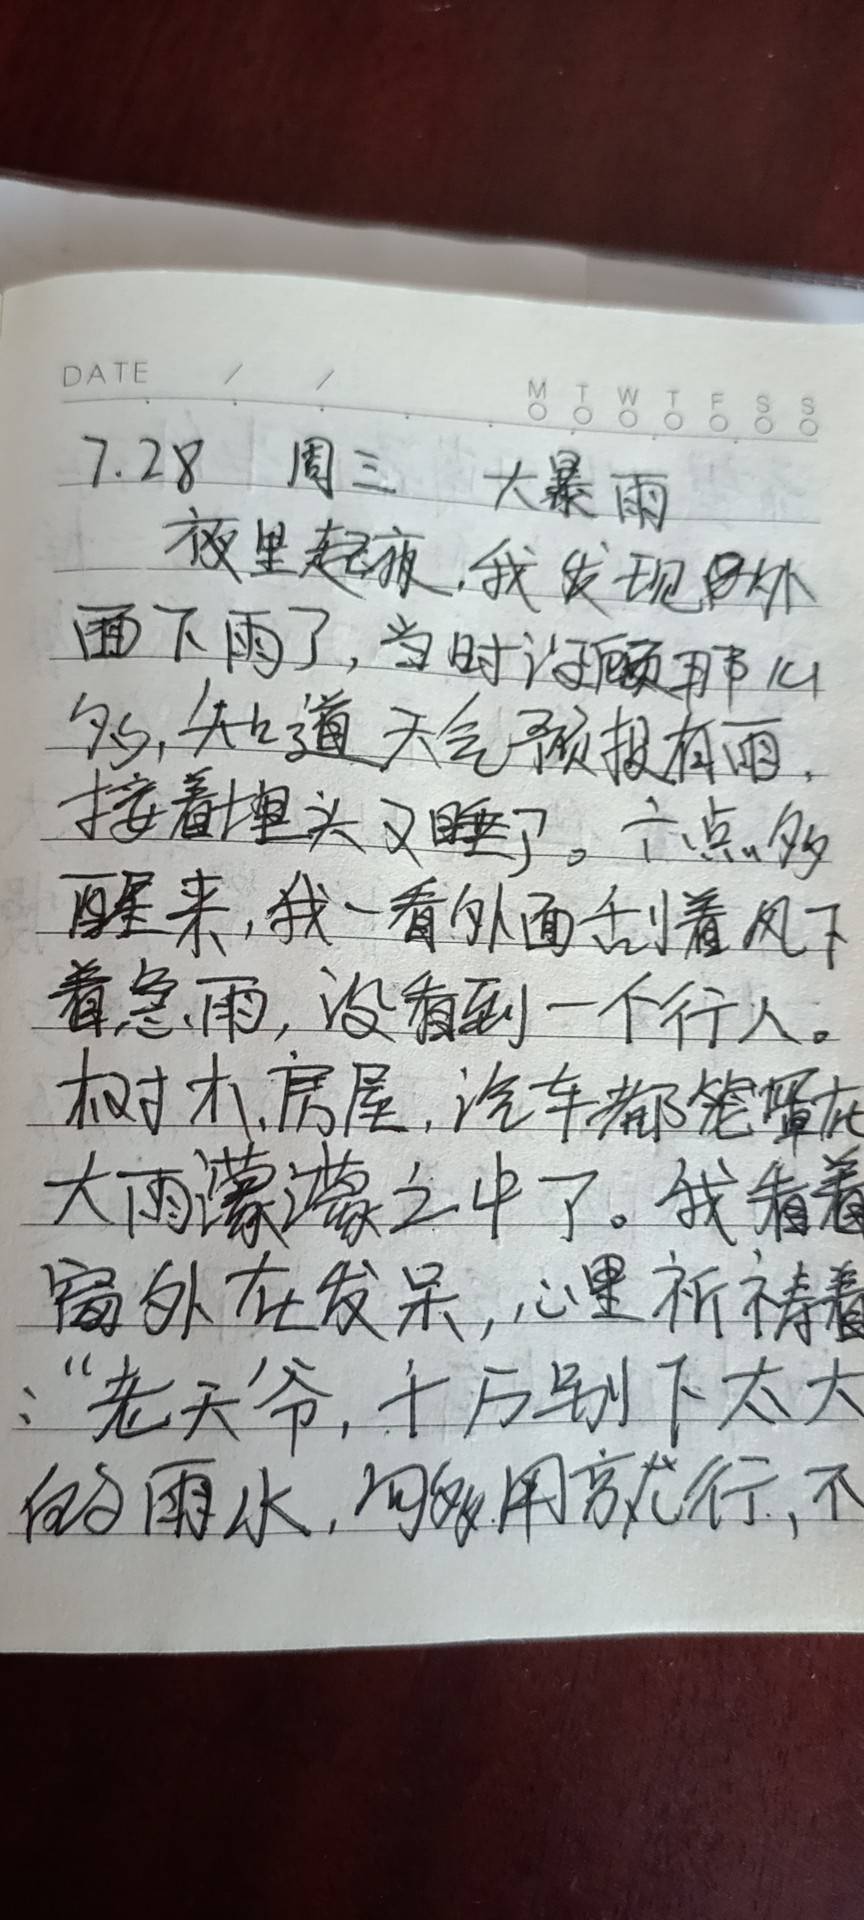 DATE / /
M T W T F S S
7.28 周三 大暴雨
夜里起夜,我发现外
面下雨了,当时没顾那么
多,知道天气预报有雨,
接着埋头又睡了。六点多
醒来,我一看外面刮着风下
着急雨,没看到一个行人。
树木、房屋,汽车都笼罩在
大雨濛濛之中了。我看着
窗外在发呆,心里祈祷着
:“老天爷,千万别下太大
的雨水,够用就行,不